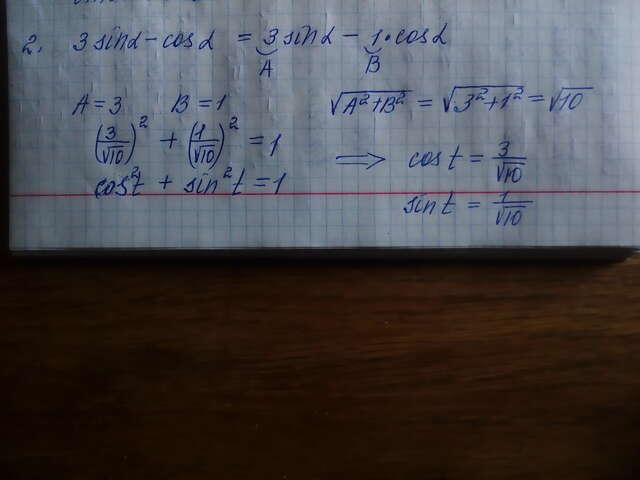 2. 3 sin α - cos α = 3 sin α - 1 · cos α
A B
A = 3 B = 1 √(A² + B²) = √(3² + 1²) = √10
(3/√10)² + (1/√10)² = 1
⟹ cos t = 3/√10
cos² t + sin² t = 1
sin t = 1/√10